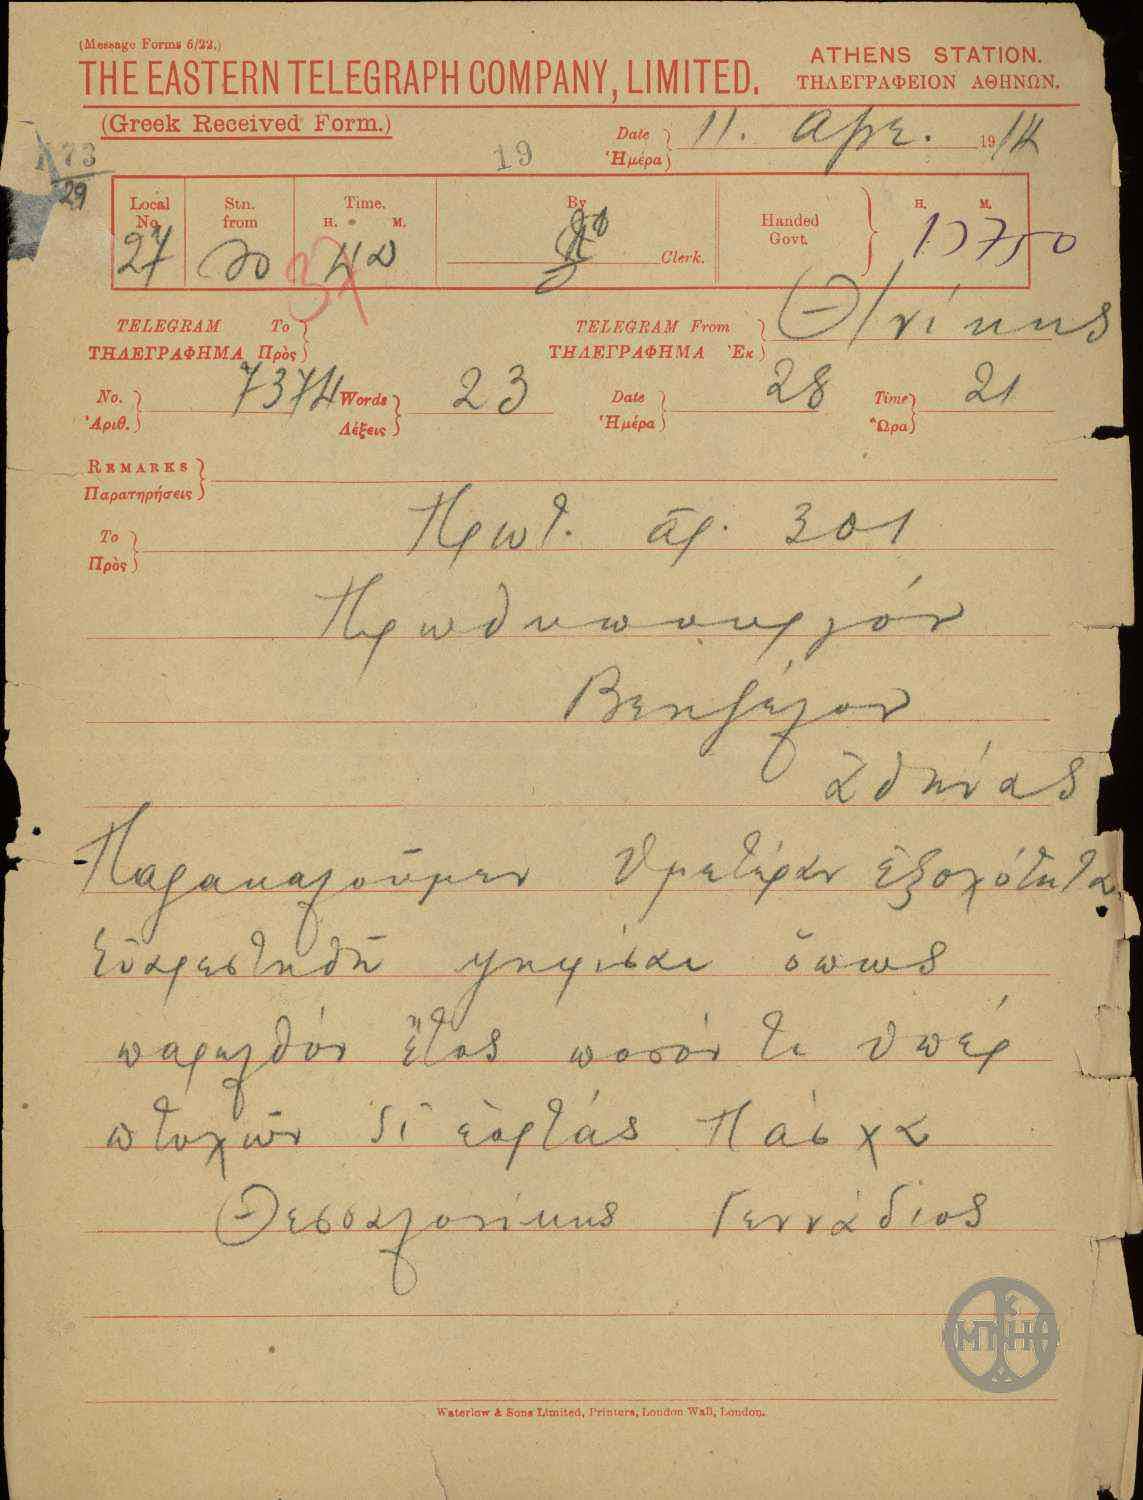 (Message Forms 6/22.)
THE EASTERN TELEGRAPH COMPANY, LIMITED.
ATHENS STATION.
ΤΗΛΕΓΡΑΦΕΙΟΝ ΑΘΗΝΩΝ.
(Greek Received Form.)
19
Date
Ἡμέρα
11. Απρ. 19
73
29
Local No.
27
Stn. from
Time.
H. M.
By
Clerk.
Handed Govt.
H. M.
TELEGRAM To
ΤΗΛΕΓΡΑΦΗΜΑ Πρὸς
TELEGRAM From
ΤΗΛΕΓΡΑΦΗΜΑ Ἐκ
Θ/νίκης
No.
Ἀριθ.
7374
Words
Λέξεις
23
Date
Ἡμέρα
28
Time
Ὥρα
21
REMARKS
Παρατηρήσεις
To
Πρὸς
Πρωτ. ἀρ. 301
Πρωθυπουργόν
Βενηζέλον
Ἀθήνας
Παρακαλοῦμεν Ὑμετέραν ἐξοχότητα
εὐαρεστηθῆ ψηφίσαι ὅπως
παρελθόν ἔτος ποσόν τι ὑπέρ
πτοχῶν δι ἑορτάς Πάσχα
Θεσσαλονίκης Γεννάδιος
ΜΠΗ
Waterlow & Sons Limited, Printers, London Wall, London.